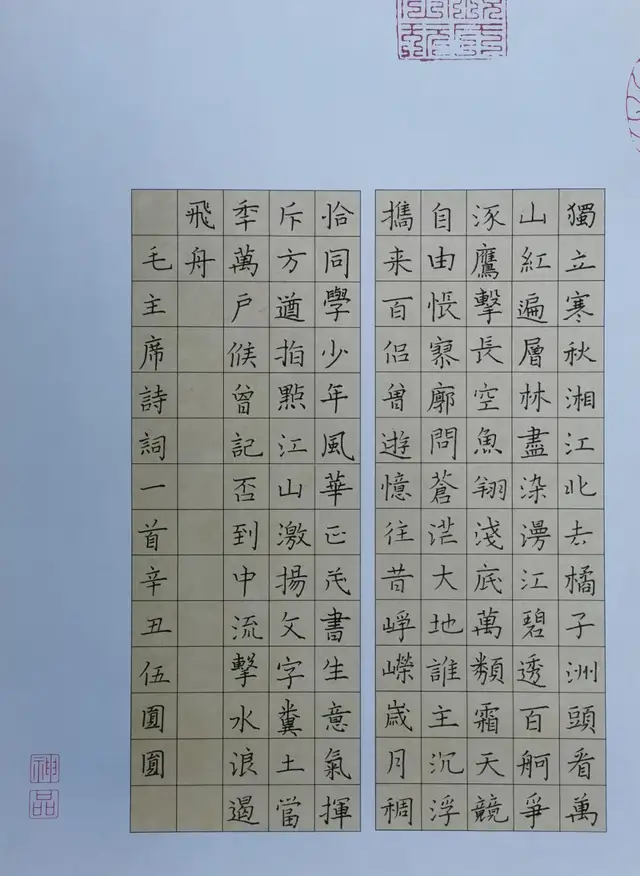 獨立寒秋湘江北去橘子洲頭看萬
山紅遍層林盡染漫江碧透百舸爭
涿鷹擊長空魚翔淺底萬類霜天競
自由悵寥廓問蒼茫大地誰主沉浮
攜来百侶曾遊憶往昔崢嶸歲月稠
恰同學少年風華正茂書生意氣揮
斥方遒指點江山激揚文字糞土當
秊萬戶候曾記否到中流擊水浪遏
飛舟
毛主席詩詞一首辛丑伍圓圓
神品